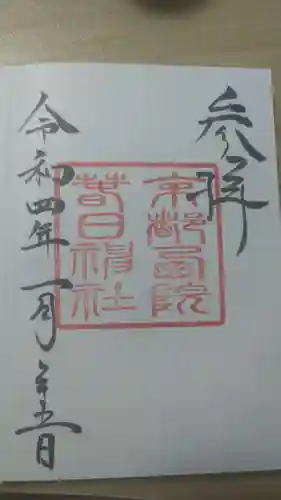 参拝
京都西院
春日神社
令和四年一月五日